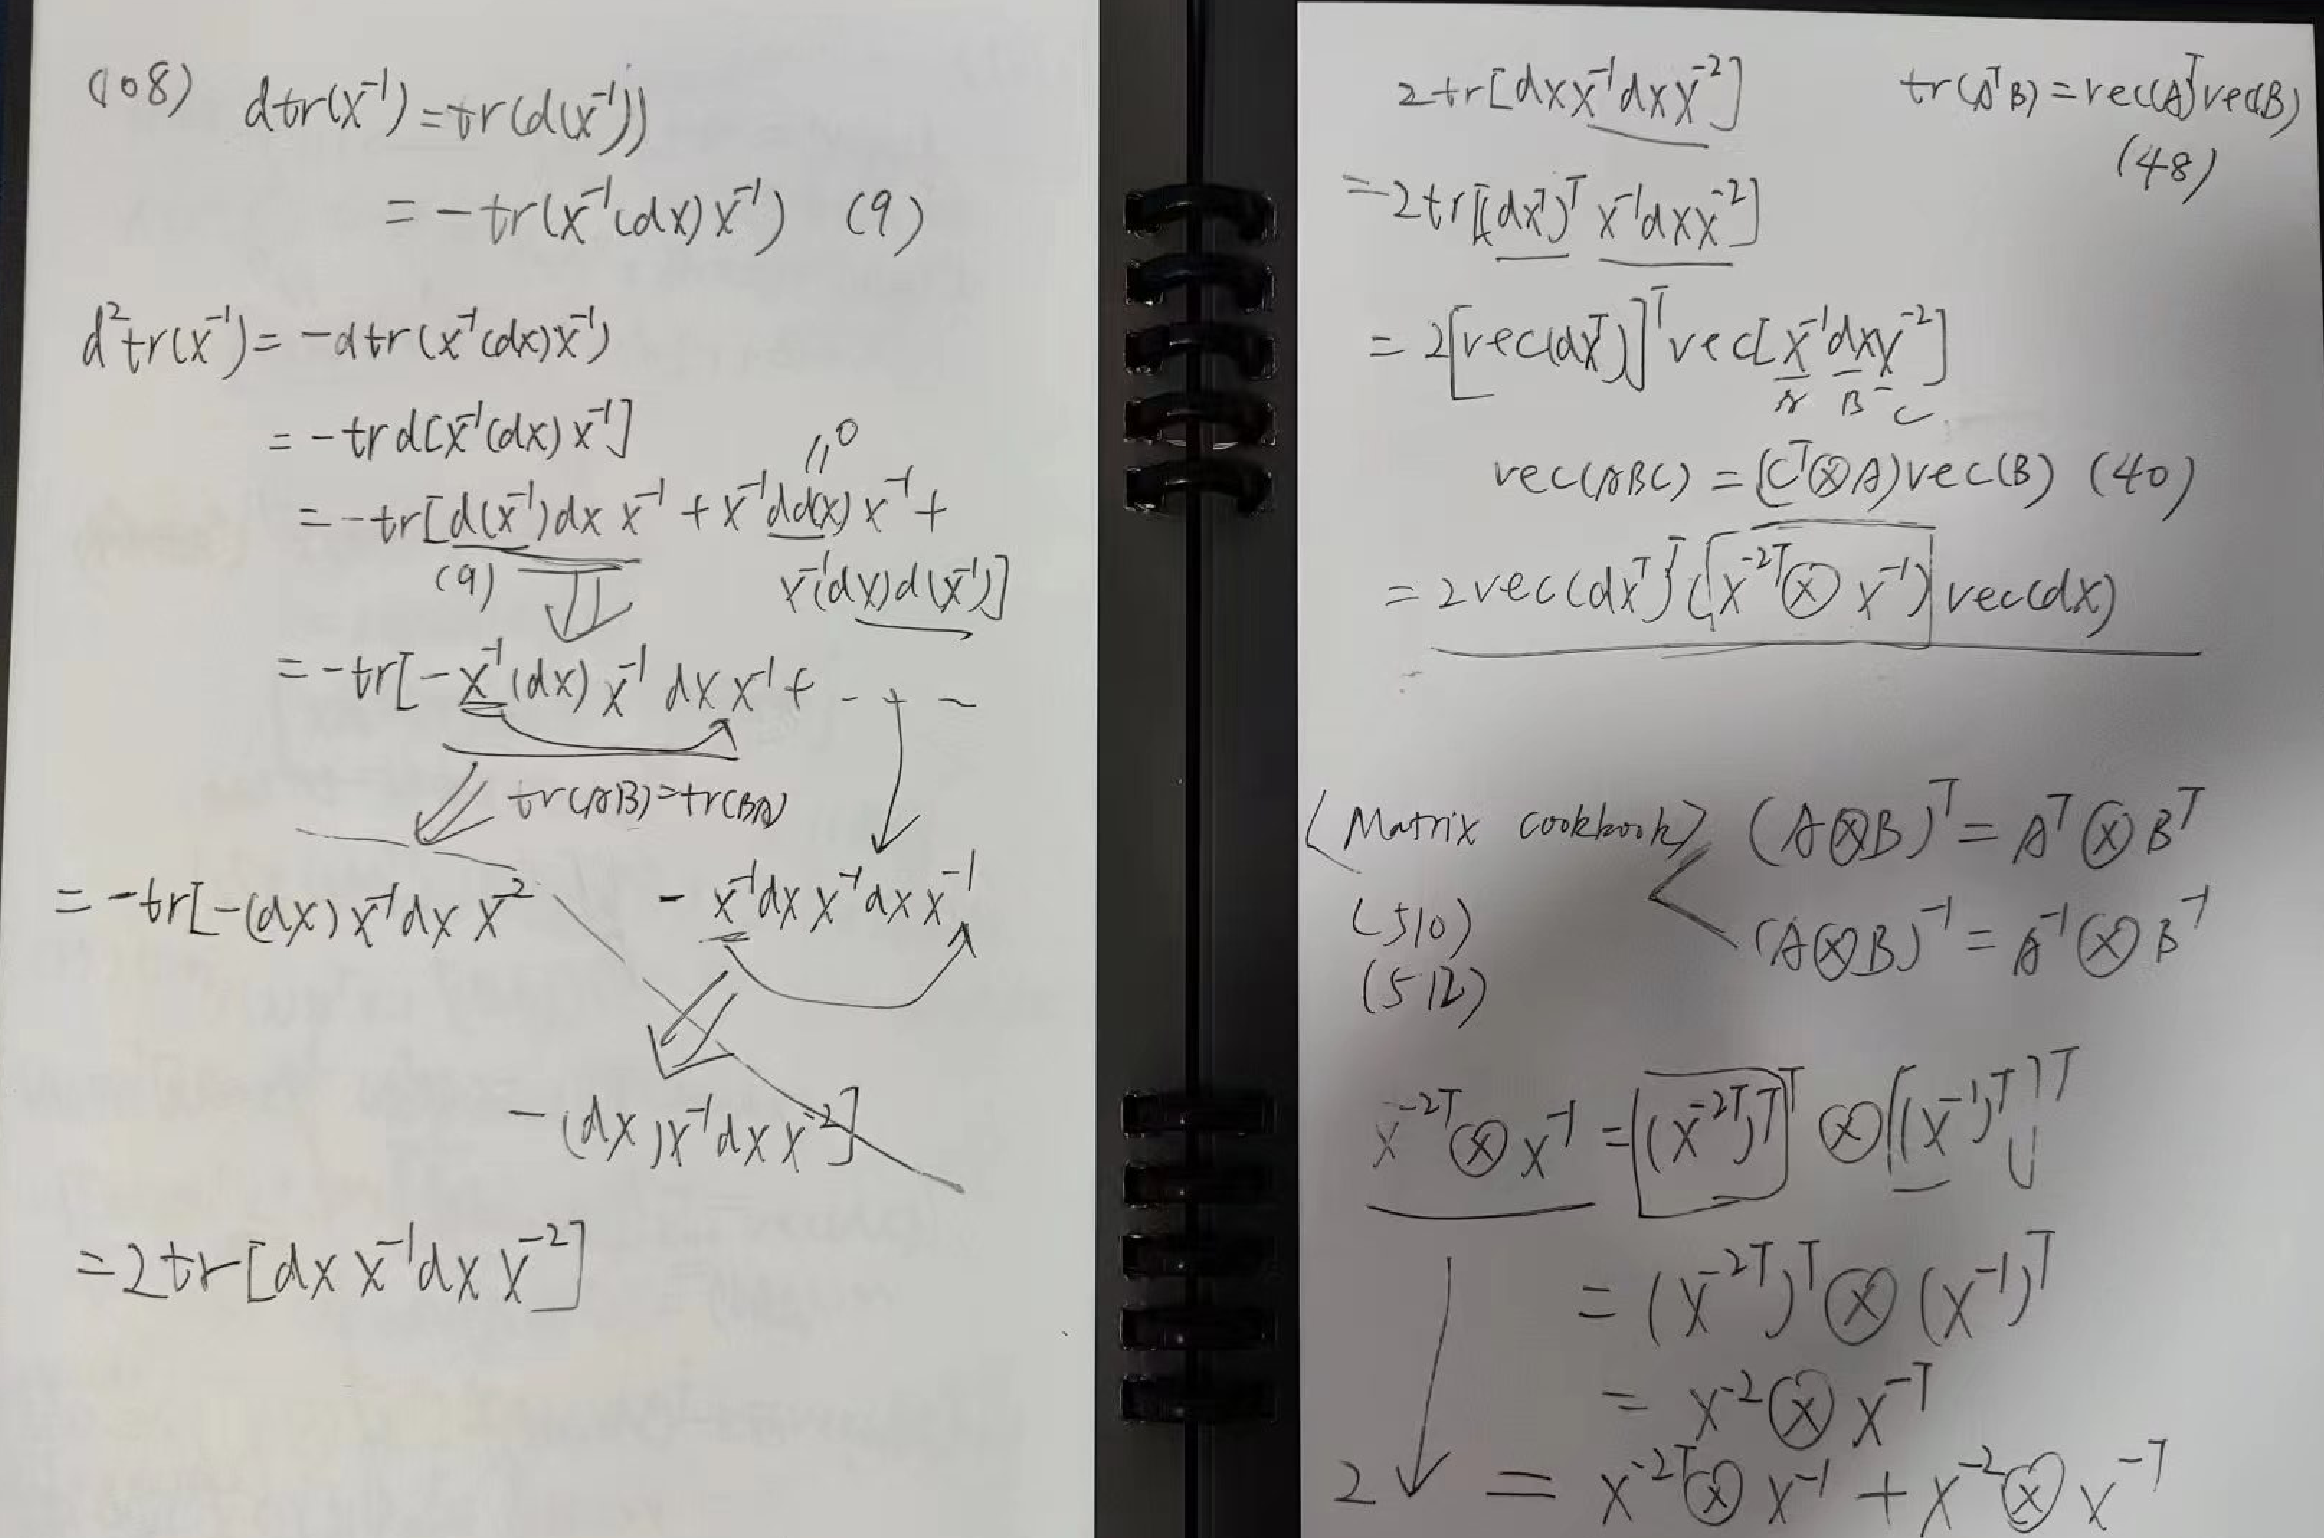 (108) dtr(x⁻¹)=tr(d(x⁻¹))
= -tr(x⁻¹(dx)x⁻¹) (9)
d²tr(x⁻¹)= -dtr(x⁻¹(dx)x⁻¹)
= -trd[x⁻¹(dx)x⁻¹]
//0
= -tr[d(x⁻¹)dx x⁻¹ + x⁻¹dd(x)x⁻¹ +
(9) x⁻¹(dx)d(x⁻¹)]
= -tr[-x⁻¹(dx)x⁻¹dx x⁻¹ + - - -
tr(AB)=tr(BA)
= -tr[-(dx)x⁻¹dx x⁻² - x⁻¹dx x⁻¹dx x⁻¹
-(dx)x⁻¹dx x⁻²]
=2tr[dx x⁻¹dx x⁻²]
2tr[dxx⁻¹dxx⁻²] tr(AᵀB)=vec(A)ᵀvec(B)
(48)
=2tr[(dxᵀ)ᵀ x⁻¹dxx⁻²]
= 2[vec(dxᵀ)]ᵀvec[x⁻¹dxx⁻²]
A B C
vec(ABC) = (Cᵀ⊗A)vec(B) (40)
= 2vec(dxᵀ)ᵀ(x⁻²ᵀ⊗x⁻¹)vec(dx)
(Matrix cookbook) (A⊗B)ᵀ= Aᵀ⊗Bᵀ
(510)
(A⊗B)⁻¹= A⁻¹⊗B⁻¹
(512)
x⁻²ᵀ⊗x⁻¹ = [(x⁻²ᵀ)ᵀ]ᵀ⊗[(x⁻¹)ᵀ]ᵀ
= (x⁻²ᵀ)ᵀ⊗(x⁻¹)ᵀ
= x⁻²⊗x⁻ᵀ
2 = x⁻²ᵀ⊗x⁻¹ + x⁻²⊗x⁻ᵀ